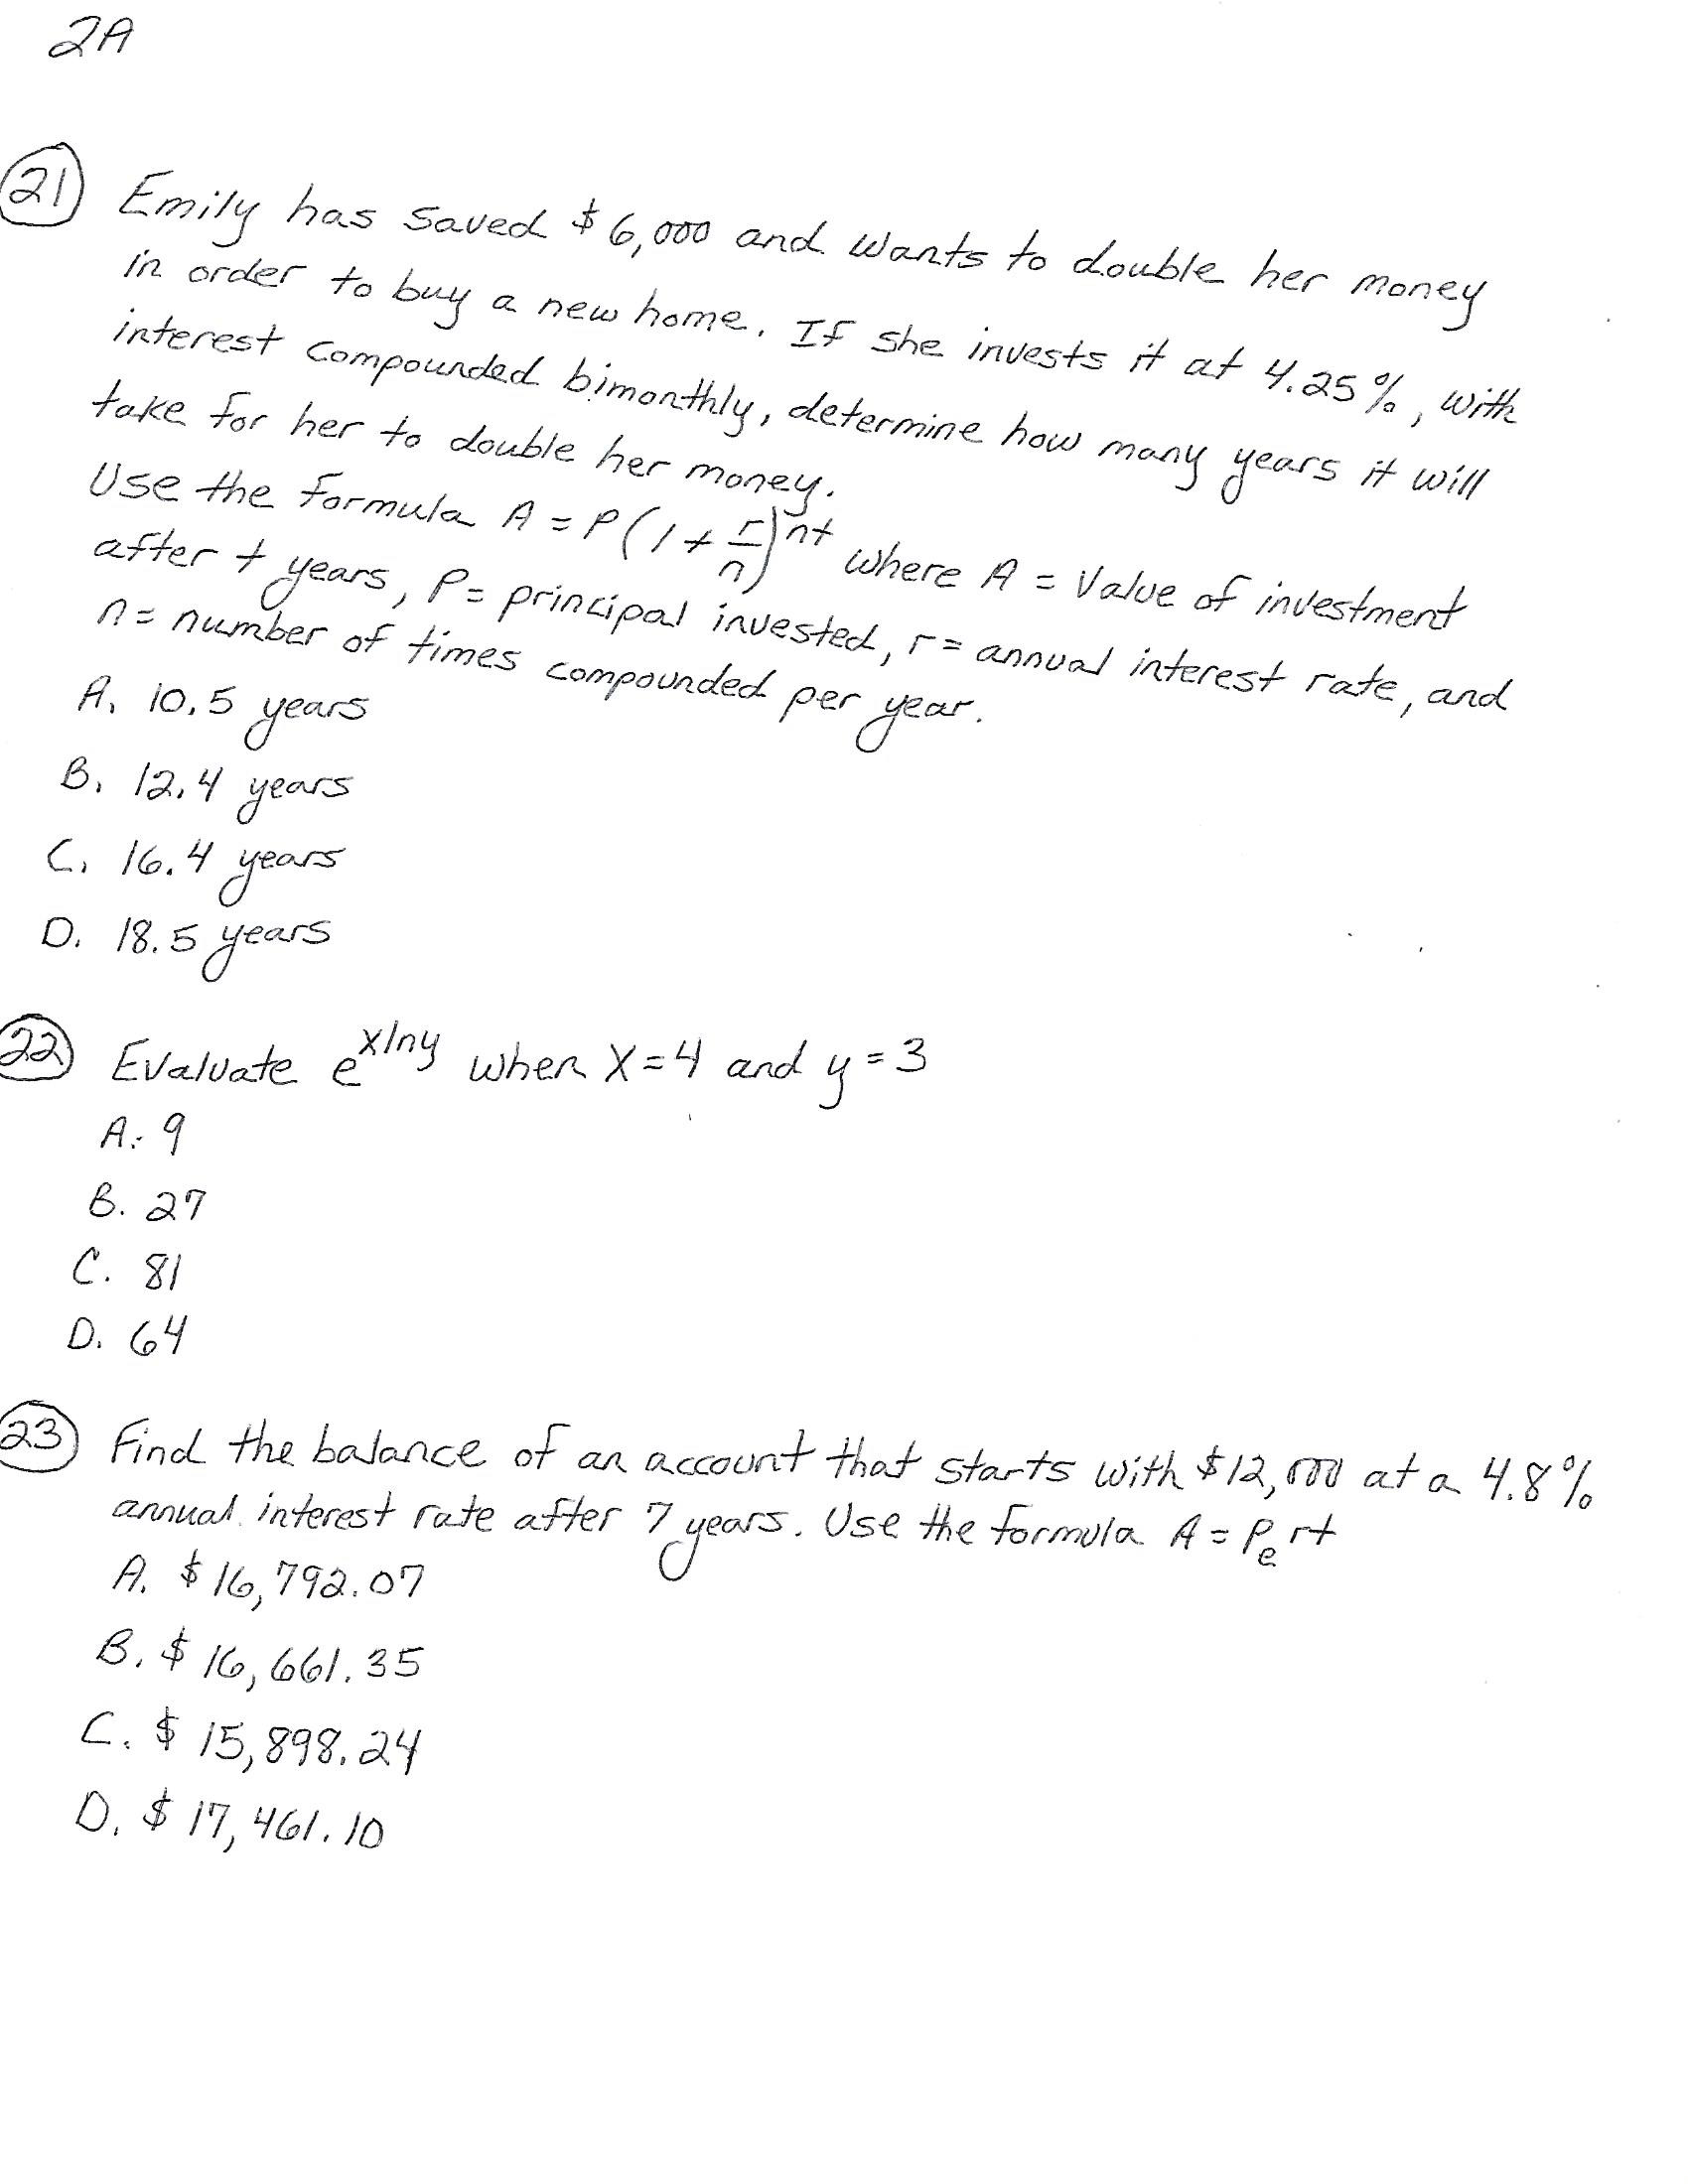 2A
21 Emily has saved $6,000 and wants to double her money
in order to buy a new home. If she invests it at 4.25%, with
interest compounded bimonthly, determine how many years it will
take for her to double her money.
Use the formula A = P(1 + r/n)^nt where A = Value of investment
after t years, P = principal invested, r = annual interest rate, and
n = number of times compounded per year.
A. 10.5 years
B. 12.4 years
C. 16.4 years
D. 18.5 years
22 Evaluate e^xlny when X = 4 and y = 3
A. 9
B. 27
C. 81
D. 64
23 Find the balance of an account that starts with $12,000 at a 4.8%
annual interest rate after 7 years. Use the formula A = Pe rt
A. $16,792.07
B. $16,661.35
C. $15,898.24
D. $17,461.10